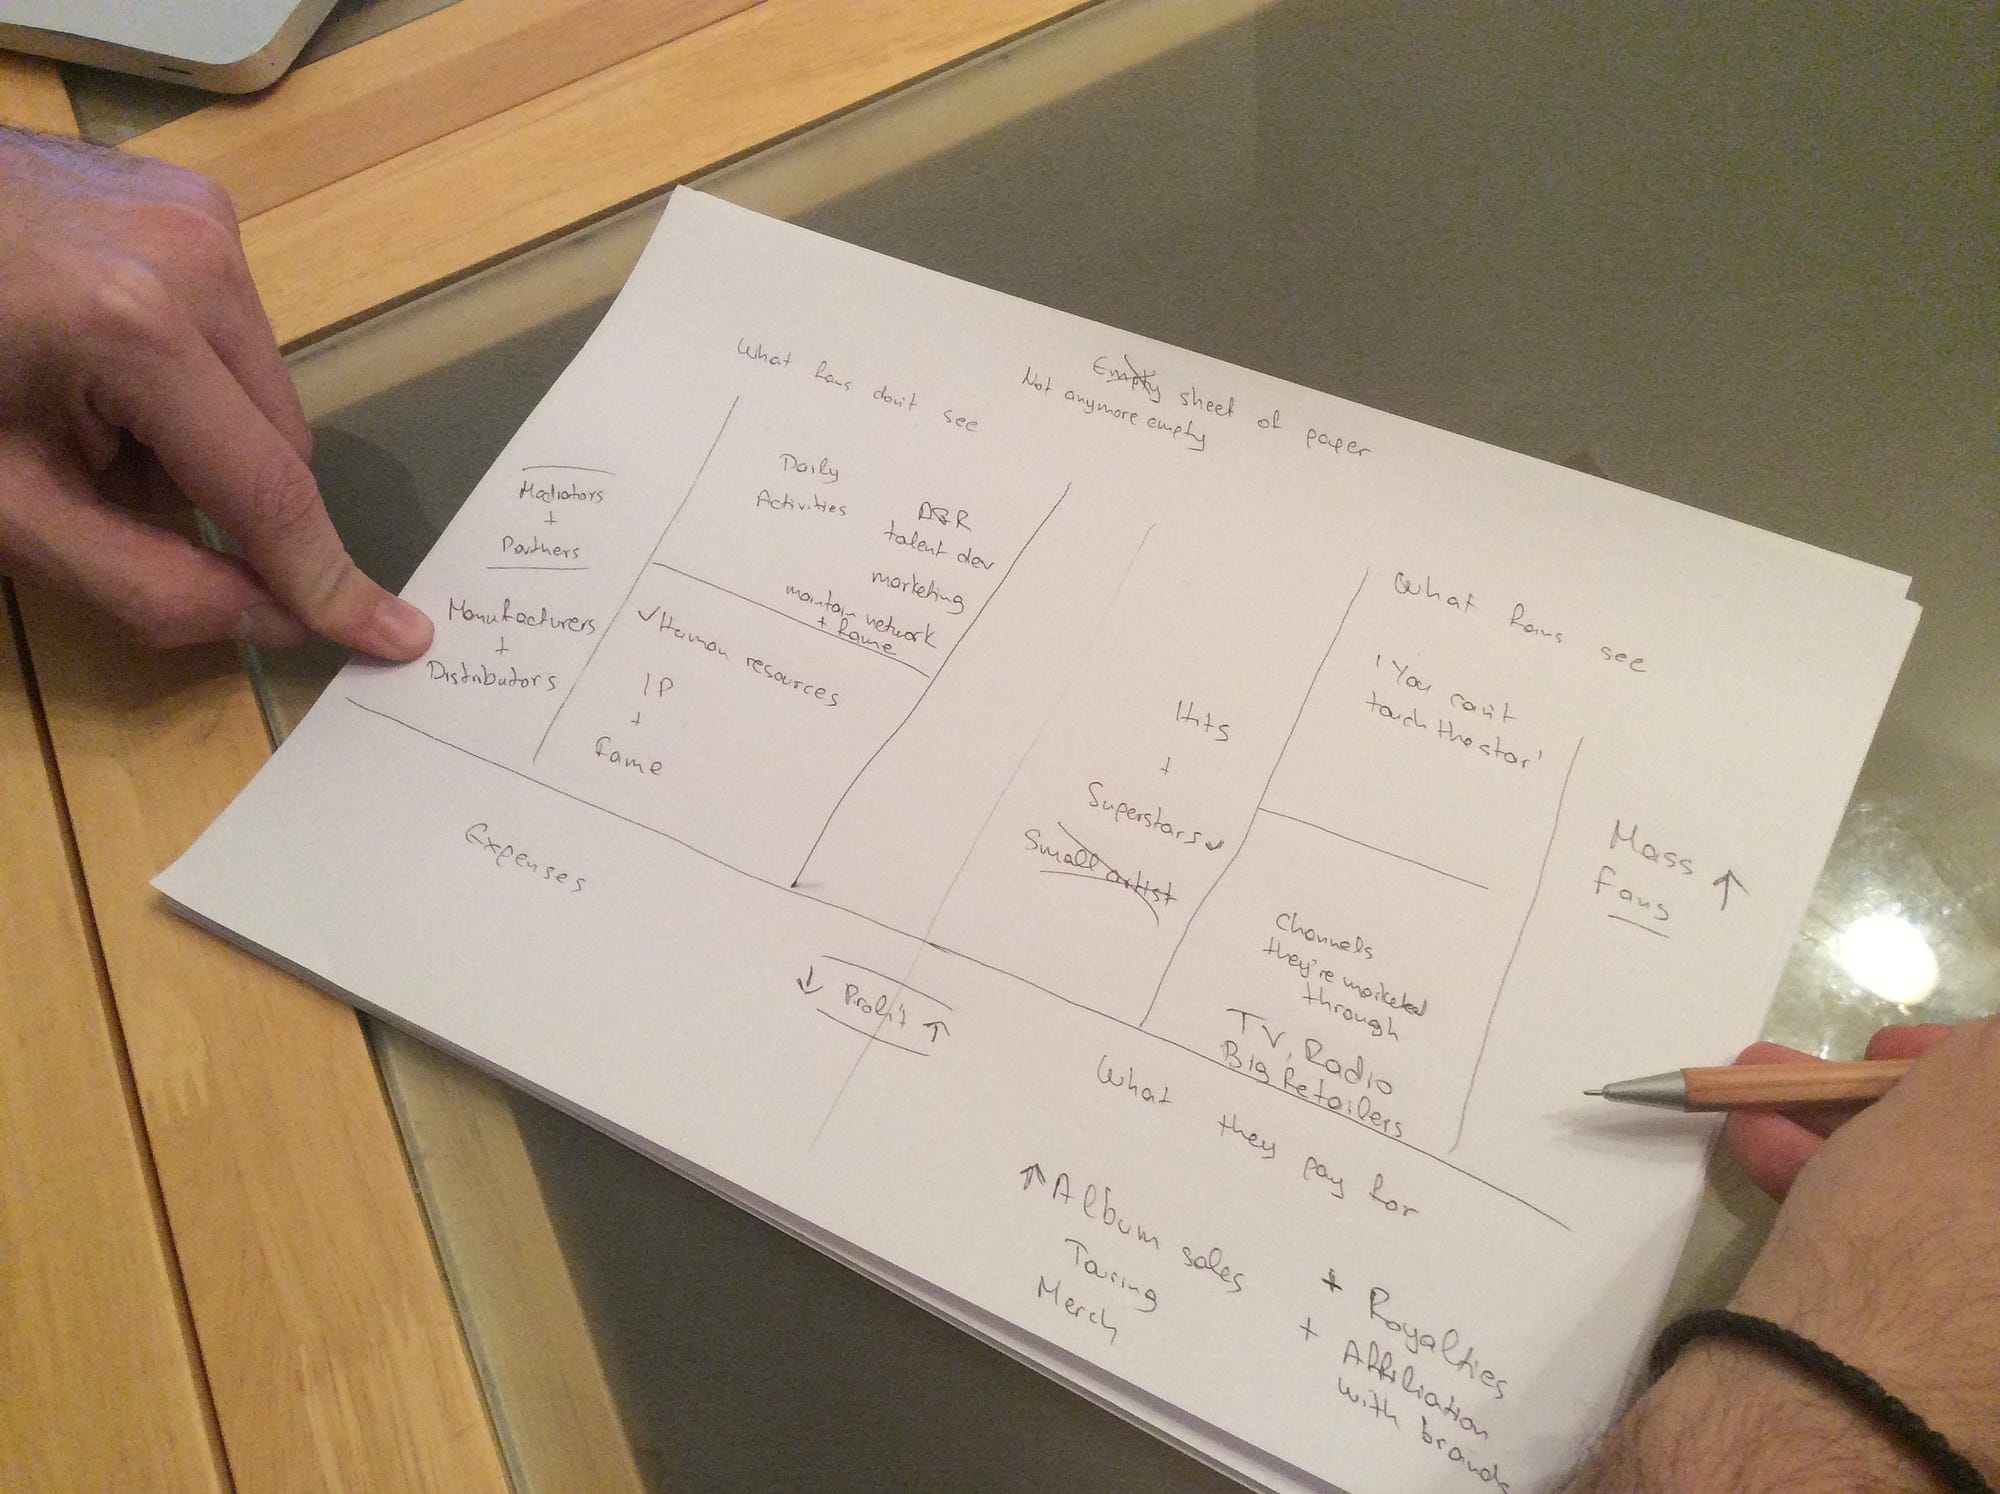 Empty sheet of paper
Not anymore empty
What fans don't see
Mediators
+
Partners
Manufacturers
+
Distributors
Daily
Activities
A&R
talent dev
marketing
maintain network
+ fame
✓Human resources
IP
+
Fame
Hits
+
Superstars ✓
Small artist
What fans see
'You can't
touch the star'
Channels
they're marketed
through
TV, Radio
Big Retailers
Mass ↑
Fans
Expenses
↓ Profit ↑
What they pay for
↑ Album sales
Touring
Merch
+ Royalties
+ Affiliation
with brands